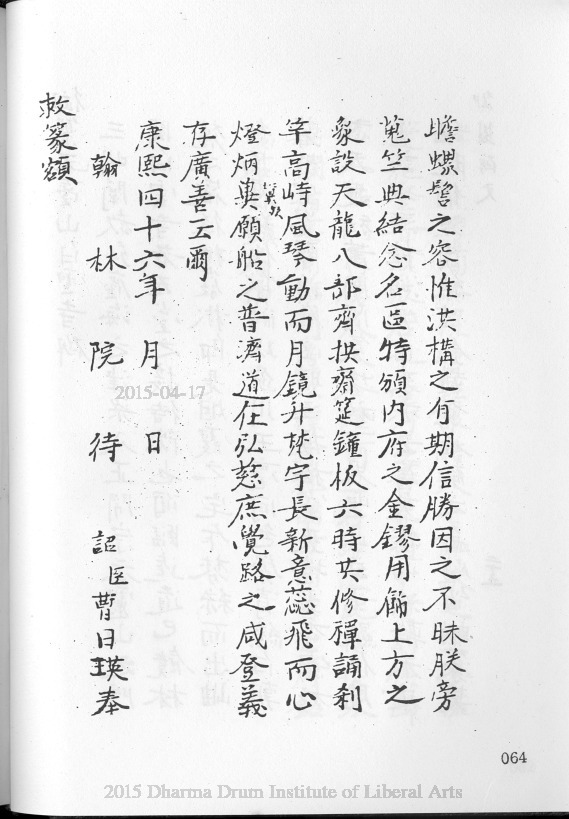 瞻螺髻之容惟洪構之有期信勝因之不昧朕旁
蒐竺典結念名區特頒内府之金鏐用飾上方之
象設天龍八部齊拱齋筵鐘板六時共修禪誦刹
竿高峙風琴動而月鏡升梵宇長新意蕊飛而心
燈炳與願船之普濟道在弘慈庶覺路之咸登義
存廣善云爾
康熙四十六年 月 日
翰林院待 詔臣曹日瑛奉
敕篆額
064
2015-04-17
2015 Dharma Drum Institute of Liberal Arts